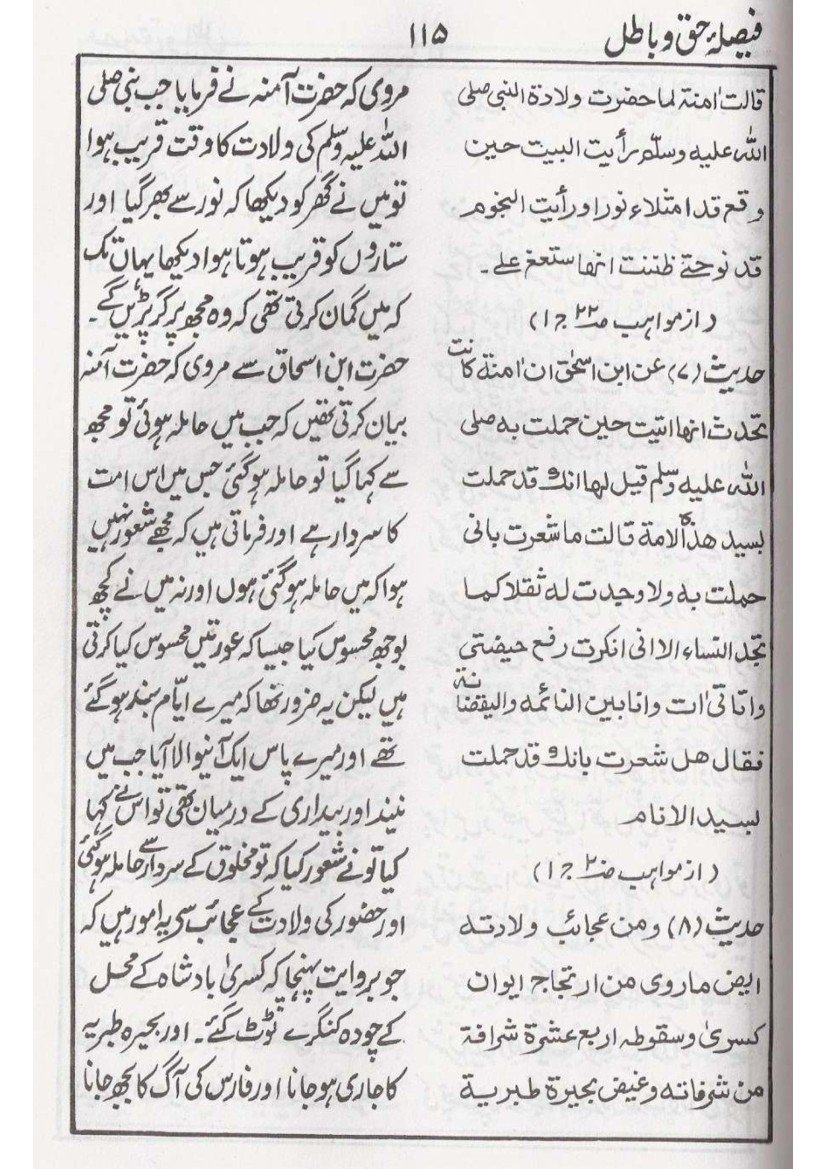 فیصلۂ حق و باطل
۱۱۵
قالت اٰمنة لما حضرت ولادة النبی صلی
اللہ علیہ وسلّم رأیت البیت حین
وقع قد امثلاء نورا ورأیت النجوم
قد نوحتے ظننت انھا ستعفع علے۔
(از مواہب صـ۲۲ ج۱)
حدیث (۷) عن ابن اسحٰق ان اٰمنة کانت
تحدث انھا اتیت حین حملت بہ صلی
اللہ علیہ وسلّم قیل لھا انک قد حملت
بسید ھذہ الامة قالت ما شعرت بانی
حملت بہ ولا وجدت لہ ثقلا کما
تجد النساء الا انی انکرت رفع حیضتی
واتانی اٰت وانا بین النائمہ والیقضانة
فقال ھل شعرت بانک قد حملت
بسید الانام
(از مواہب صـ۲۰ ج۱)
حدیث (۸) ومن عجائب ولادتہ
ایض ماروی من ارتجاج ایوان
کسریٰ وسقوطہ اربع عشرة شرافة
من شرفاتہ وغیض بحیرة طبریة
مروی کہ حضرت آمنہ نے فرمایا جب نبی صلی
اللہ علیہ وسلم کی ولادت کا وقت قریب ہوا
تو میں نے گھر کو دیکھا کہ نور سے بھر گیا اور
ستاروں کو قریب ہوتا ہوا دیکھا یہاں تک
کہ میں گمان کرتی تھی کہ وہ مجھ پر گر پڑیں گے۔
حضرت ابن اسحاق سے مروی کہ حضرت آمنہ
بیان کرتی تھیں کہ جب میں حاملہ ہوئی تو مجھ
سے کہا گیا تو حاملہ ہو گئی جس میں اس امت
کا سردار ہے اور فرماتی ہیں کہ مجھے شعور نہیں
ہوا کہ میں حاملہ ہو گئی ہوں اور نہ میں نے کچھ
بوجھ محسوس کیا جیسا کہ عورتیں محسوس کیا کرتی
ہیں لیکن یہ ضرور تھا کہ میرے ایّام بند ہو گئے
تھے اور میرے پاس ایک آنیوالا آیا جب میں
نیند اور بیداری کے درمیان تھی تو اس نے کہا
کیا تو نے شعور کیا کہ تو مخلوق کے سردار سے حاملہ ہو گئی
اور حضور کی ولادت کے عجائب سے یہ امور ہیں کہ
جو بروایت پہنچا کہ کسریٰ بادشاہ کے محل
کے چودہ کنگرے ٹوٹ گئے۔ اور بحیرہ طبریہ
کا جاری ہو جانا اور فارس کی آگ کا بجھ جانا